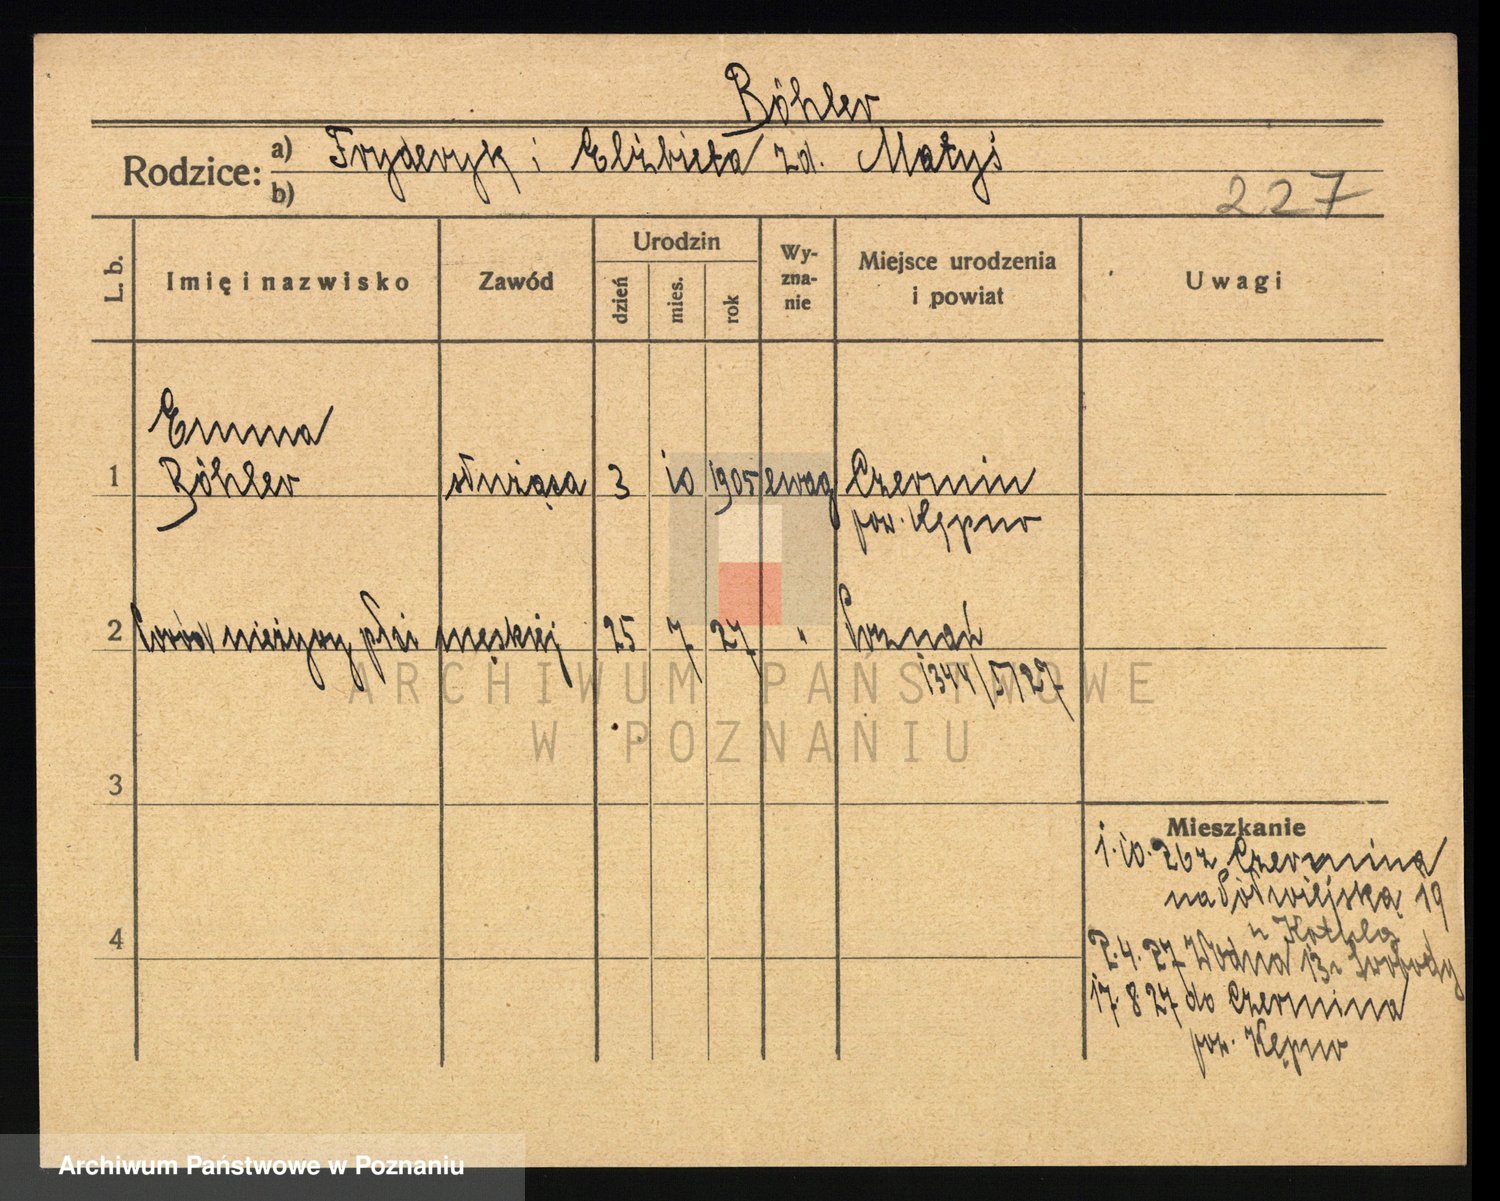 Böhler
Rodzice: a) Fryderyk i Elżbieta zd. Matyś
b)
227
L. b.
Imię i nazwisko
Zawód
Urodzin
dzień
mies.
rok
Wy-
zna-
nie
Miejsce urodzenia
i powiat
Uwagi
Emma
1 Böhler służąca 3 10 1905 ewag Czermin
pow. Kępno
2 nieżywy płci męskiej 25 7 27 " Poznań
1344/V/27
3
Mieszkanie
1.10.26 z Czermina
na Półwiejską 19
4
2.4.27 Wodna 13
17.8.27 do Czermina
pow. Kępno
ARCHIWUM PAŃSTWOWE
W POZNANIU
Archiwum Państwowe w Poznaniu